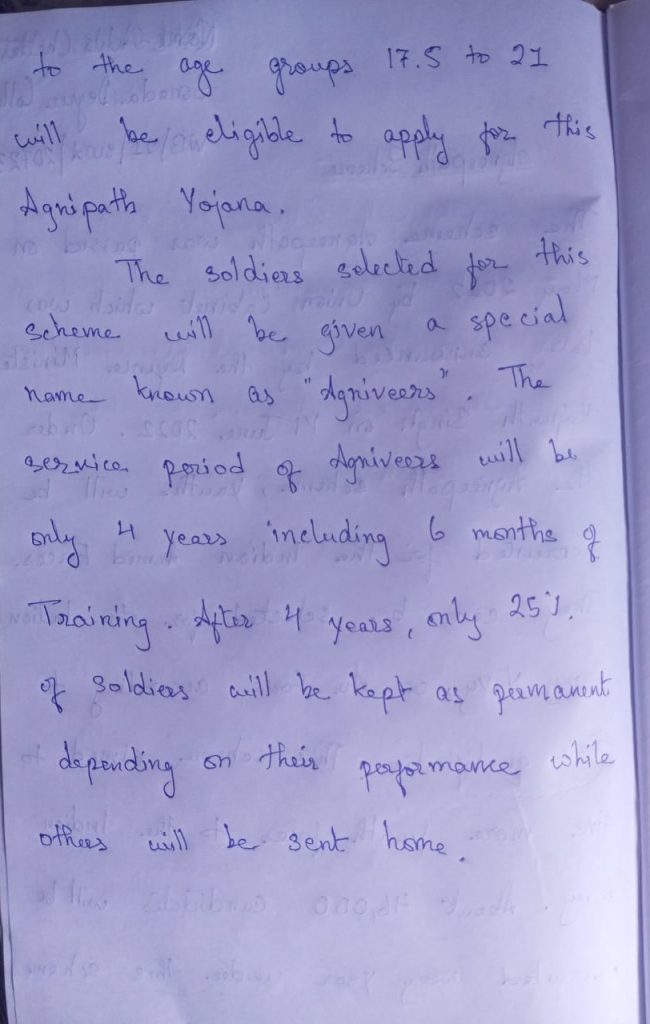 to the age groups 17.5 to 21
will be eligible to apply for this
Agnipath Yojana.
The soldiers selected for this
scheme will be given a special
name known as "Agniveers". The
service period of Agniveers will be
only 4 years including 6 months of
Training. After 4 years, only 25%
of soldiers will be kept as permanent
depending on their performance while
others will be sent home.